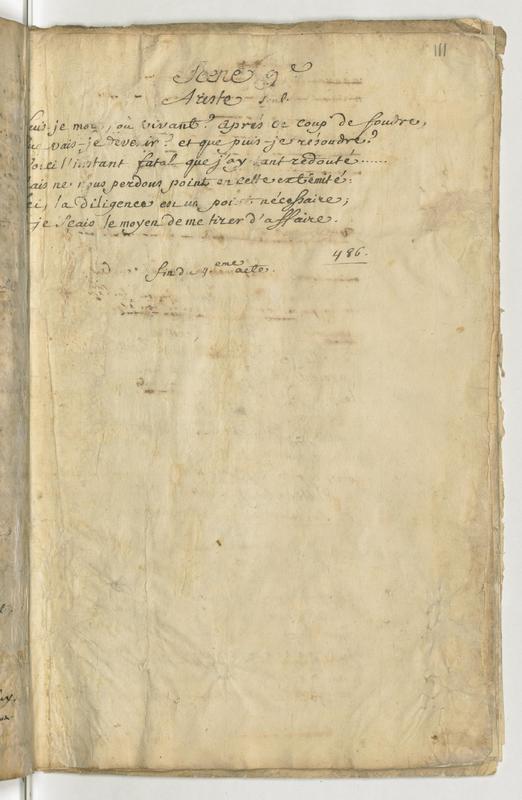 111
Scene 9e
Ariste seul.
suis-je mort, ou vivant? aprés ce coup de foudre,
que vais-je devenir? et que puis je résoudre?
Voici l'instant fatal que j'ay tant redouté......
mais ne nous perdons point en cette extrémité:
ici, la Diligence est un point nécessaire;
je sçais le moyen de me tirer d'affaire.
486.
fin du 4eme acte.